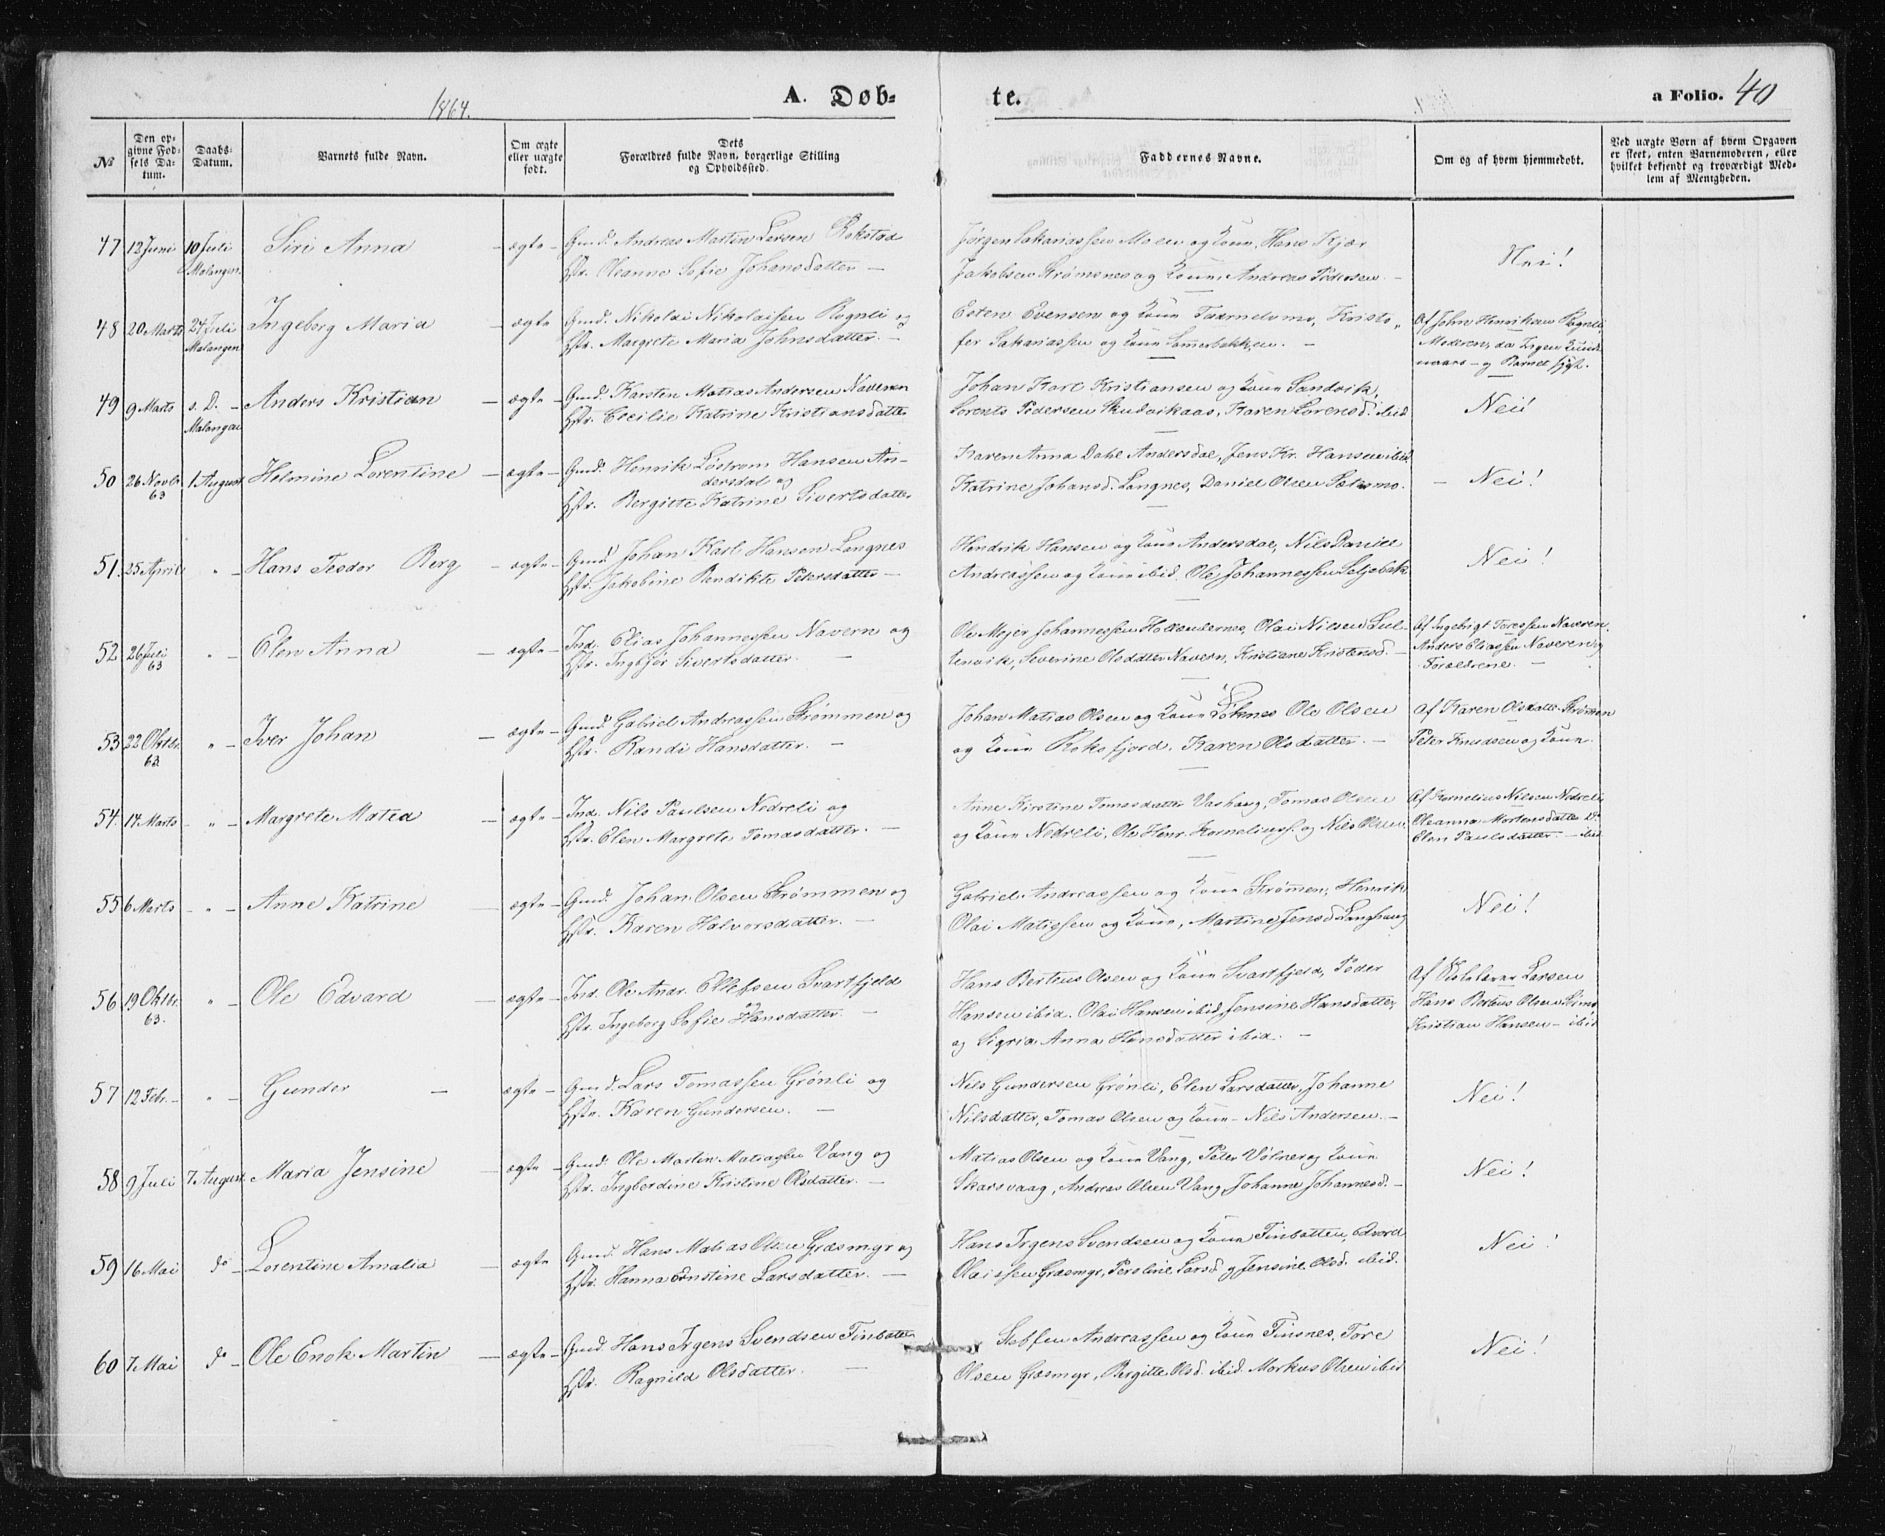 1864.
A. Døb-
te.
a Folio. 40
No
Den op-
givne Fød-
sels Da-
tum.
Daabs-
Datum.
Barnets fulde Navn.
Om ægte
eller uægte
født.
Dets
Forældres fulde Navn, borgerlige Stilling
og Opholdssted.
Faddernes Navne.
Om og af hvem hjemmedøbt.
Ved uægte Børn af hvem Opgaven
er skeet, enten Barnemoderen, eller
hvilket bekjendt og troværdigt Med-
lem af Menigheden.
47 12 Juni 10 Juli Siri Anna – ægte – Gmd. Andreas Martin Larsen Rokstad
Malangen Hstr. Oleanne Sofie Johansdatter –
Jørgen Sakariassen Moen og Kone, Hans Kjær
Jakobsen Strømsnes og Kone, Andreas Pedersen –
Nei!
48 20 Marts 24 Juli Ingeborg Maria – ægte – Gmd. Nikolai Nikolaissen Rognli og
Malangen Hstr. Margrete Maria Johnsdatter. –
Esten Evensen og Kone Taarnelvmo, Kristo-
fer Sakariassen og Kone Sommerbakken. –
Af John Henriksen Rognli
Moderen, da Ingen Kunde
naaes – og Barnet sygt.
49 9 Marts s. D. – Anders Kristian – ægte – Gmd. Karsten Matias Andersen Naveren
Malangen Hstr. Cecilie Katrine Kristiansdatter
Johan Karl Kristiansen og Kone Sandvik,
Lorents Pedersen Skutvikaas, Karen Lorensd. ibid
Nei!
50 26 Novbr 1 August Helmine Lorentine – ægte – Gmd. Henrik Løstrom Hansen An-
63 dersdal og
Hstr. Bergitte Katrine Sivertsdatter
Karen Anna Dahl Andersdal, Jens Kr. Hansen ibid
Katrine Johansd. Langnes, Daniel Olsen Petersmo.
– Nei!
51. 25 April " – Hans Teodor Berg – ægte – Gmd. Johan Karl Hansen Langnes
Hstr. Jakobine Bendikte Petersdatter –
Hendrik Hansen og Kone Andersdal, Nils Daniel
Andreassen og Kone ibid. Ole Johannessen Seljebak
Nei!
52. 26 Juli " – Elen Anna – ægte – Ind. Elias Johannessen Navern og
63 Hstr. Ingebjør Sivertsdatter. –
Ole Mejer Johannessen Hollendernes, Olai Nilsen Lul-
lenvik, Severine Olsdatter Navern, Kristiane Kristensd. –
Af Ingebrigt Toressen Naveren.
Anders Eliassen Naveren og
Forældrene. –
53 22 Oktbr. " – Iver Johan – ægte – Gmd. Gabriel Andreassen Strømmen og
63. Hstr. Randi Hansdatter. –
Johan Matias Olsen og Kone Løknes Ole Olsen
og Kone Roksfjord. Karen Olsdatter. –
Af Karen Olsdatter Strømen
Peter Knudsen og Kone.
54. 14 Marts – " – Margrete Matea – ægte – Ind. Nils Paulsen Nedreli og
Hstr. Elen Margrete Tomasdatter. –
Anne Kirstine Tomasdatter Vashaug, Tomas Olsen
og Kone Nedreli, Ole Henr. Korneliuss. og Nils Olsen.
Af Kornelius Nilsen Nedreli,
Oleanna Mortensdatter do.
Elen Paulsdatter. – ibid
55 6 Marts – " – Anne Katrine – ægte – Gmd. Johan Olsen Strømmen og
Hstr. Karen Halvorsdatter. –
Gabriel Andreassen og Kone Strømen, Henrik
Olai Matissen og Kone, Martine Jensd. Langhaug
Nei!
56 19 Oktbr. " – Ole Edvard – ægte – Ind. Ole Andr. Ellefsen Svartfjeld
63. Hstr. Ingeborg Sofie Hansdatter. –
Hans Berteus Olsen og Kone Svartfjeld, Peder
Hansen ibid. Olai Hansen ibid, Jensine Hansdatter,
og Sigria Anna Hansdatter ibid. –
Af Larsen
Hans Berteus Olsen
Kristian Hansen – ibid
57 12 Febr. – " – Gunder – ægte – Gmd. Lars Tomassen Grønli og
Hstr. Karen Gundersen. –
Nils Gundersen Grønli, Elen Larsdatter, Johanne
Nilsdatter, Tomas Olsen og Kone – Nils Andersen. –
Nei!
58 9 Juli 7 August Maria Jensine – ægte – Gmd. Ole Martin Matiassen Vang og
Hstr. Ingberdine Kristine Olsdatter. –
Matias Olsen og Kone Vang, Peter Vølner og Kone
Skarsvaag, Andreas Olsen Vang, Johanne Johannesd. –
Nei!
59 16 Mai do – Lorentine Amalia – ægte – Gmd. Hans Matias Olsen Græsmyr og
Hstr. Hanna Ernstine Larsdatter. –
Hans Irgens Svendsen og Kone Finbotten, Edvard
Olaissen Græsmyr, Peroline Larsd. og Jensine Olsd. ibid.
Nei!
60 7 Mai do – Ole Enok Martin – ægte – Gmd. Hans Irgens Svendsen Finbotten
Hstr. Ragnild Olsdatter. –
Steffen Andreassen og Kone Finsnes, Tore
Olsen Græsmyr, Birgitte Olsd. ibid. Markus Olsen ibid
Nei!